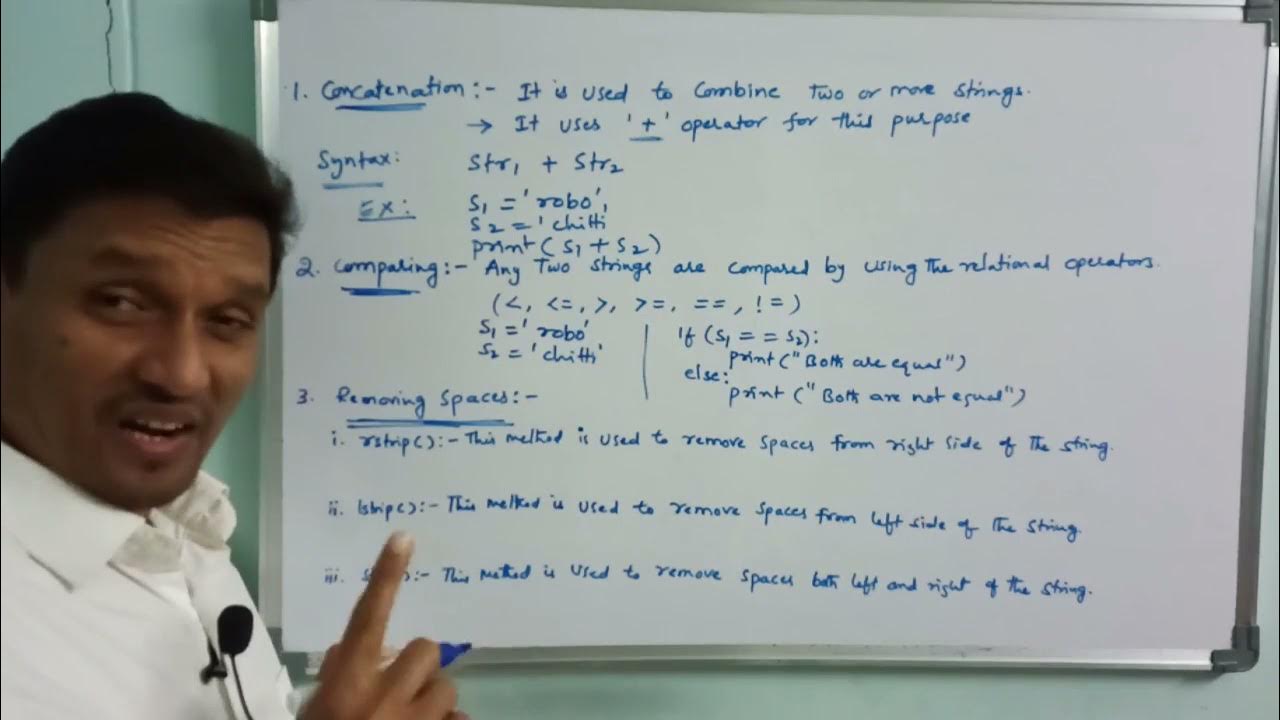 1. Concatenation :- It is used to Combine Two or more strings.
→ It uses '+' operator for this purpose
Syntax: Str1 + Str2
EX: S1 = 'robo',
S2 = 'chitti
print(S1 + S2)
2. Comparing :- Any Two strings are compared by using The relational operators.
(<, <=, >, >=, ==, !=)
S1 = 'robo'
S2 = 'chitti'
If (S1 == S2):
print("Both are equal")
else:
print("Both are not equal")
3. Removing Spaces :-
i. rstrip() :- This method is used to remove spaces from right side of The string.
ii. lstrip() :- This method is used to remove spaces from left side of The string.
iii. :- This method is used to remove spaces both left and right of the string.